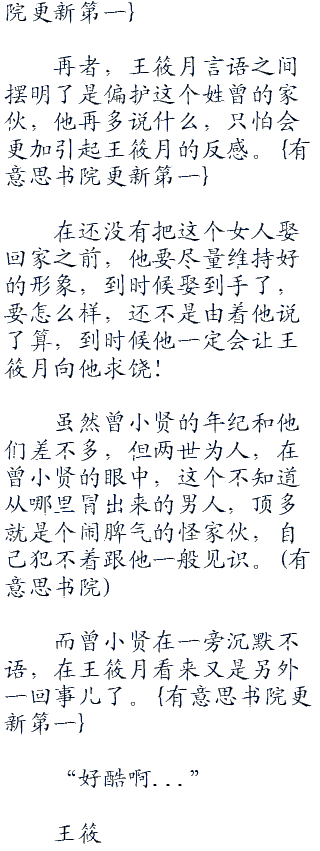 院更新第一}
再者，王筱月言语之间
摆明了是偏护这个姓曾的家
伙，他再多说什么，只怕会
更加引起王筱月的反感。{有
意思书院更新第一}
在还没有把这个女人娶
回家之前，他要尽量维持好
的形象，到时候娶到手了，
要怎么样，还不是由着他说
了算，到时候他一定会让王
筱月向他求饶！
虽然曾小贤的年纪和他
们差不多，但两世为人，在
曾小贤的眼中，这个不知道
从哪里冒出来的男人，顶多
就是个闹脾气的怪家伙，自
己犯不着跟他一般见识。(有
意思书院)
而曾小贤在一旁沉默不
语，在王筱月看来又是另外
一回事儿了。{有意思书院更
新第一}
“好酷啊...”
王筱